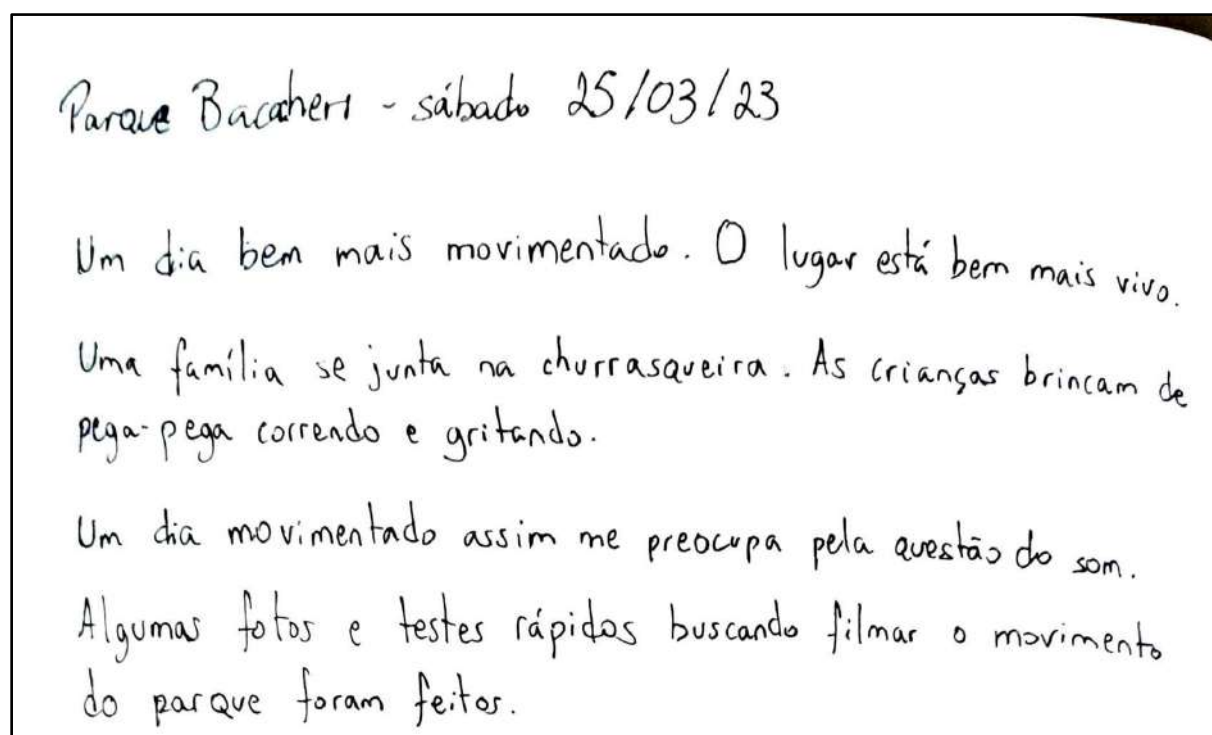 Parque Bacacheri - sábado 25/03/23
Um dia bem mais movimentado. O lugar está bem mais vivo.
Uma família se junta na churrasqueira. As crianças brincam de
pega-pega correndo e gritando.
Um dia movimentado assim me preocupa pela questão do som.
Algumas fotos e testes rápidos buscando filmar o movimento
do parque foram feitos.